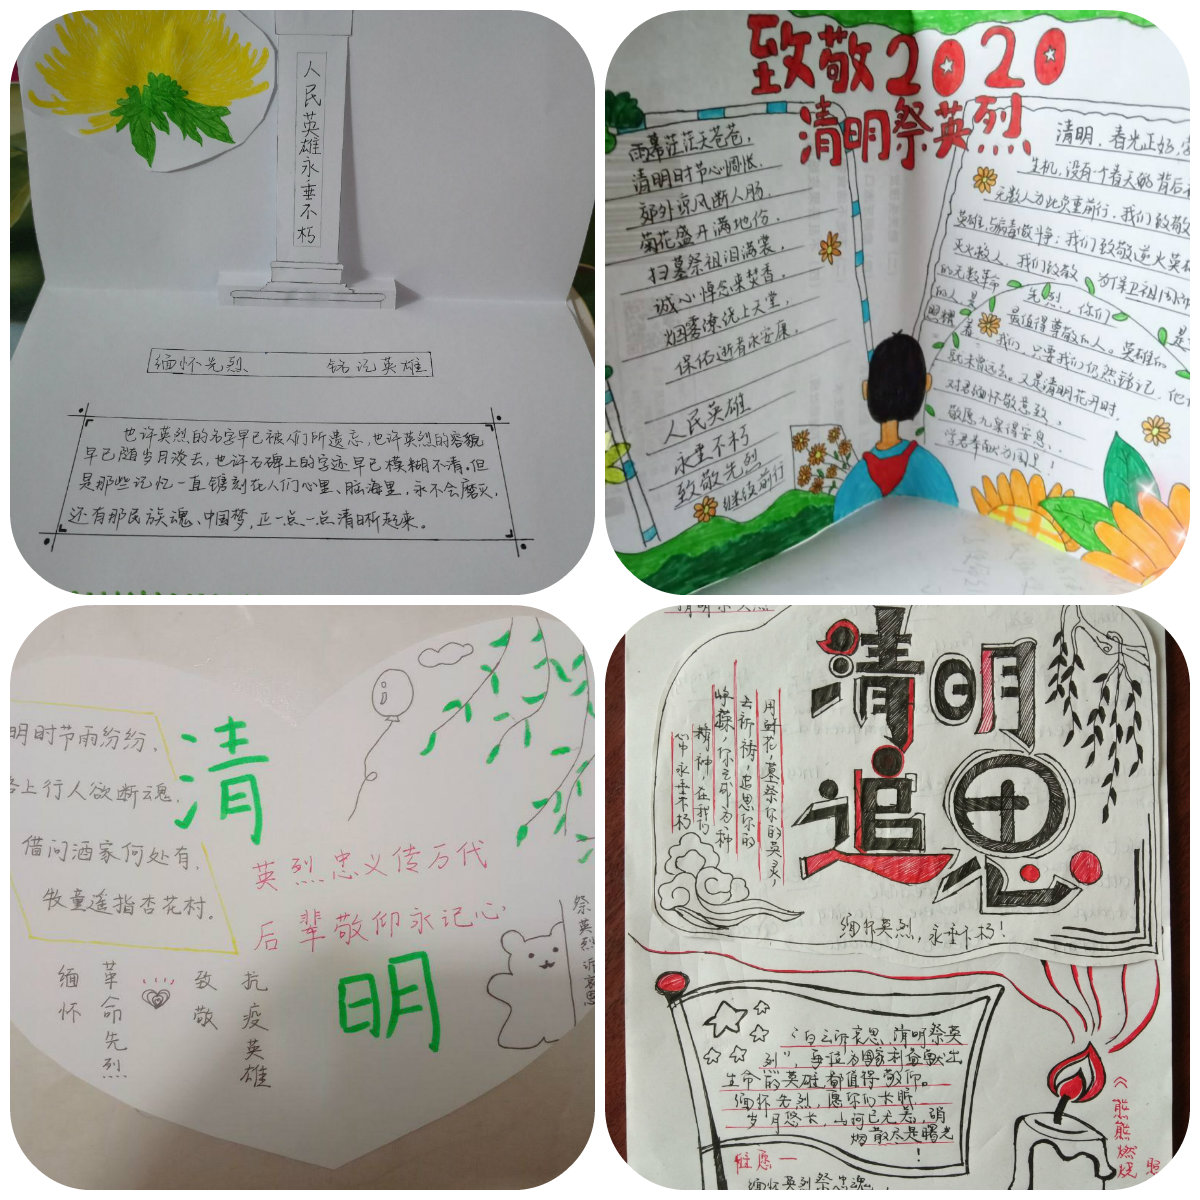 人民英雄永垂不朽
缅怀先烈 铭记英雄
也许英烈的名字早已被人们所遗忘,也许英烈的容貌
早已随岁月淡去,也许石碑上的字迹早已模糊不清。但
是那些记忆一直镌刻在人们心里、脑海里,永不会磨灭,
还有那民族魂、中国梦,正一点一点清晰起来。
致敬2020
清明祭英烈
雨幕茫茫天苍苍,
清明时节心惆怅.
郊外凉风断人肠.
菊花盛开满地伤.
扫墓祭祖泪满裳.
诚心悼念来焚香.
烟雾缭绕上天堂.
保佑逝者永安康.
人民英雄
永垂不朽
致敬先烈
继续前行
清明,春光正好,
生机,没有一个春天能背后
无数人为此负重前行,我们致敬
英雄,与病毒做争;我们致敬逆火英
灭火救人,我们致敬
的无数革命先烈,你们
的人,是最值得尊敬的人。英雄的
照耀着我们,只要我们仍然铭记,他
就未曾远去。又是清明花开时,
对君缅怀敬意致,
敬愿九泉得安息.
明时节雨纷纷,
上行人欲断魂,
借问酒家何处有,
牧童遥指杏花村。
清
明
英烈忠义传万代
后辈敬仰永记心
缅怀
革命先烈
致敬
抗疫英雄
祭英烈 诉哀思
清明
追思
用鲜花,墓祭你的英灵,
去祈祷,追思你的
你立成为一种
精神,在我们
心中永垂不朽
缅怀英烈,永垂不朽!
“白云诉哀思,清明祭英
烈” 每位为国家利益献出
生命的英雄都值得敬仰。
缅怀先烈,愿你们长眠.
岁月悠长,山河已无恙,硝
烟散尽是曙光
!
缅怀英烈祭忠魂,
《熊熊燃烧